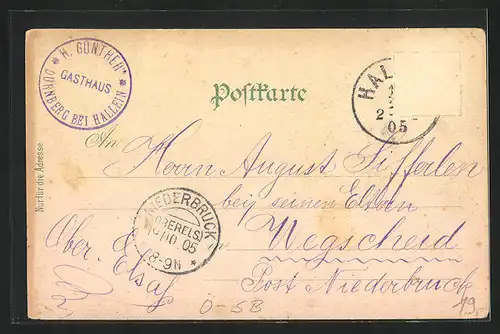 * H. GÜNTHER *
GASTHAUS
DÜRNBERG BEI HALLEIN
Postkarte
HAL
2
05
Nur für die Adresse
An
Herrn August Sifferlen
bei seinen Eltern
Wegscheid
Post Niederbruck
Ober Elsaß
NIEDERBRUCK
(OBERELS)
10.05
8-9N
Ö-SB
19,-